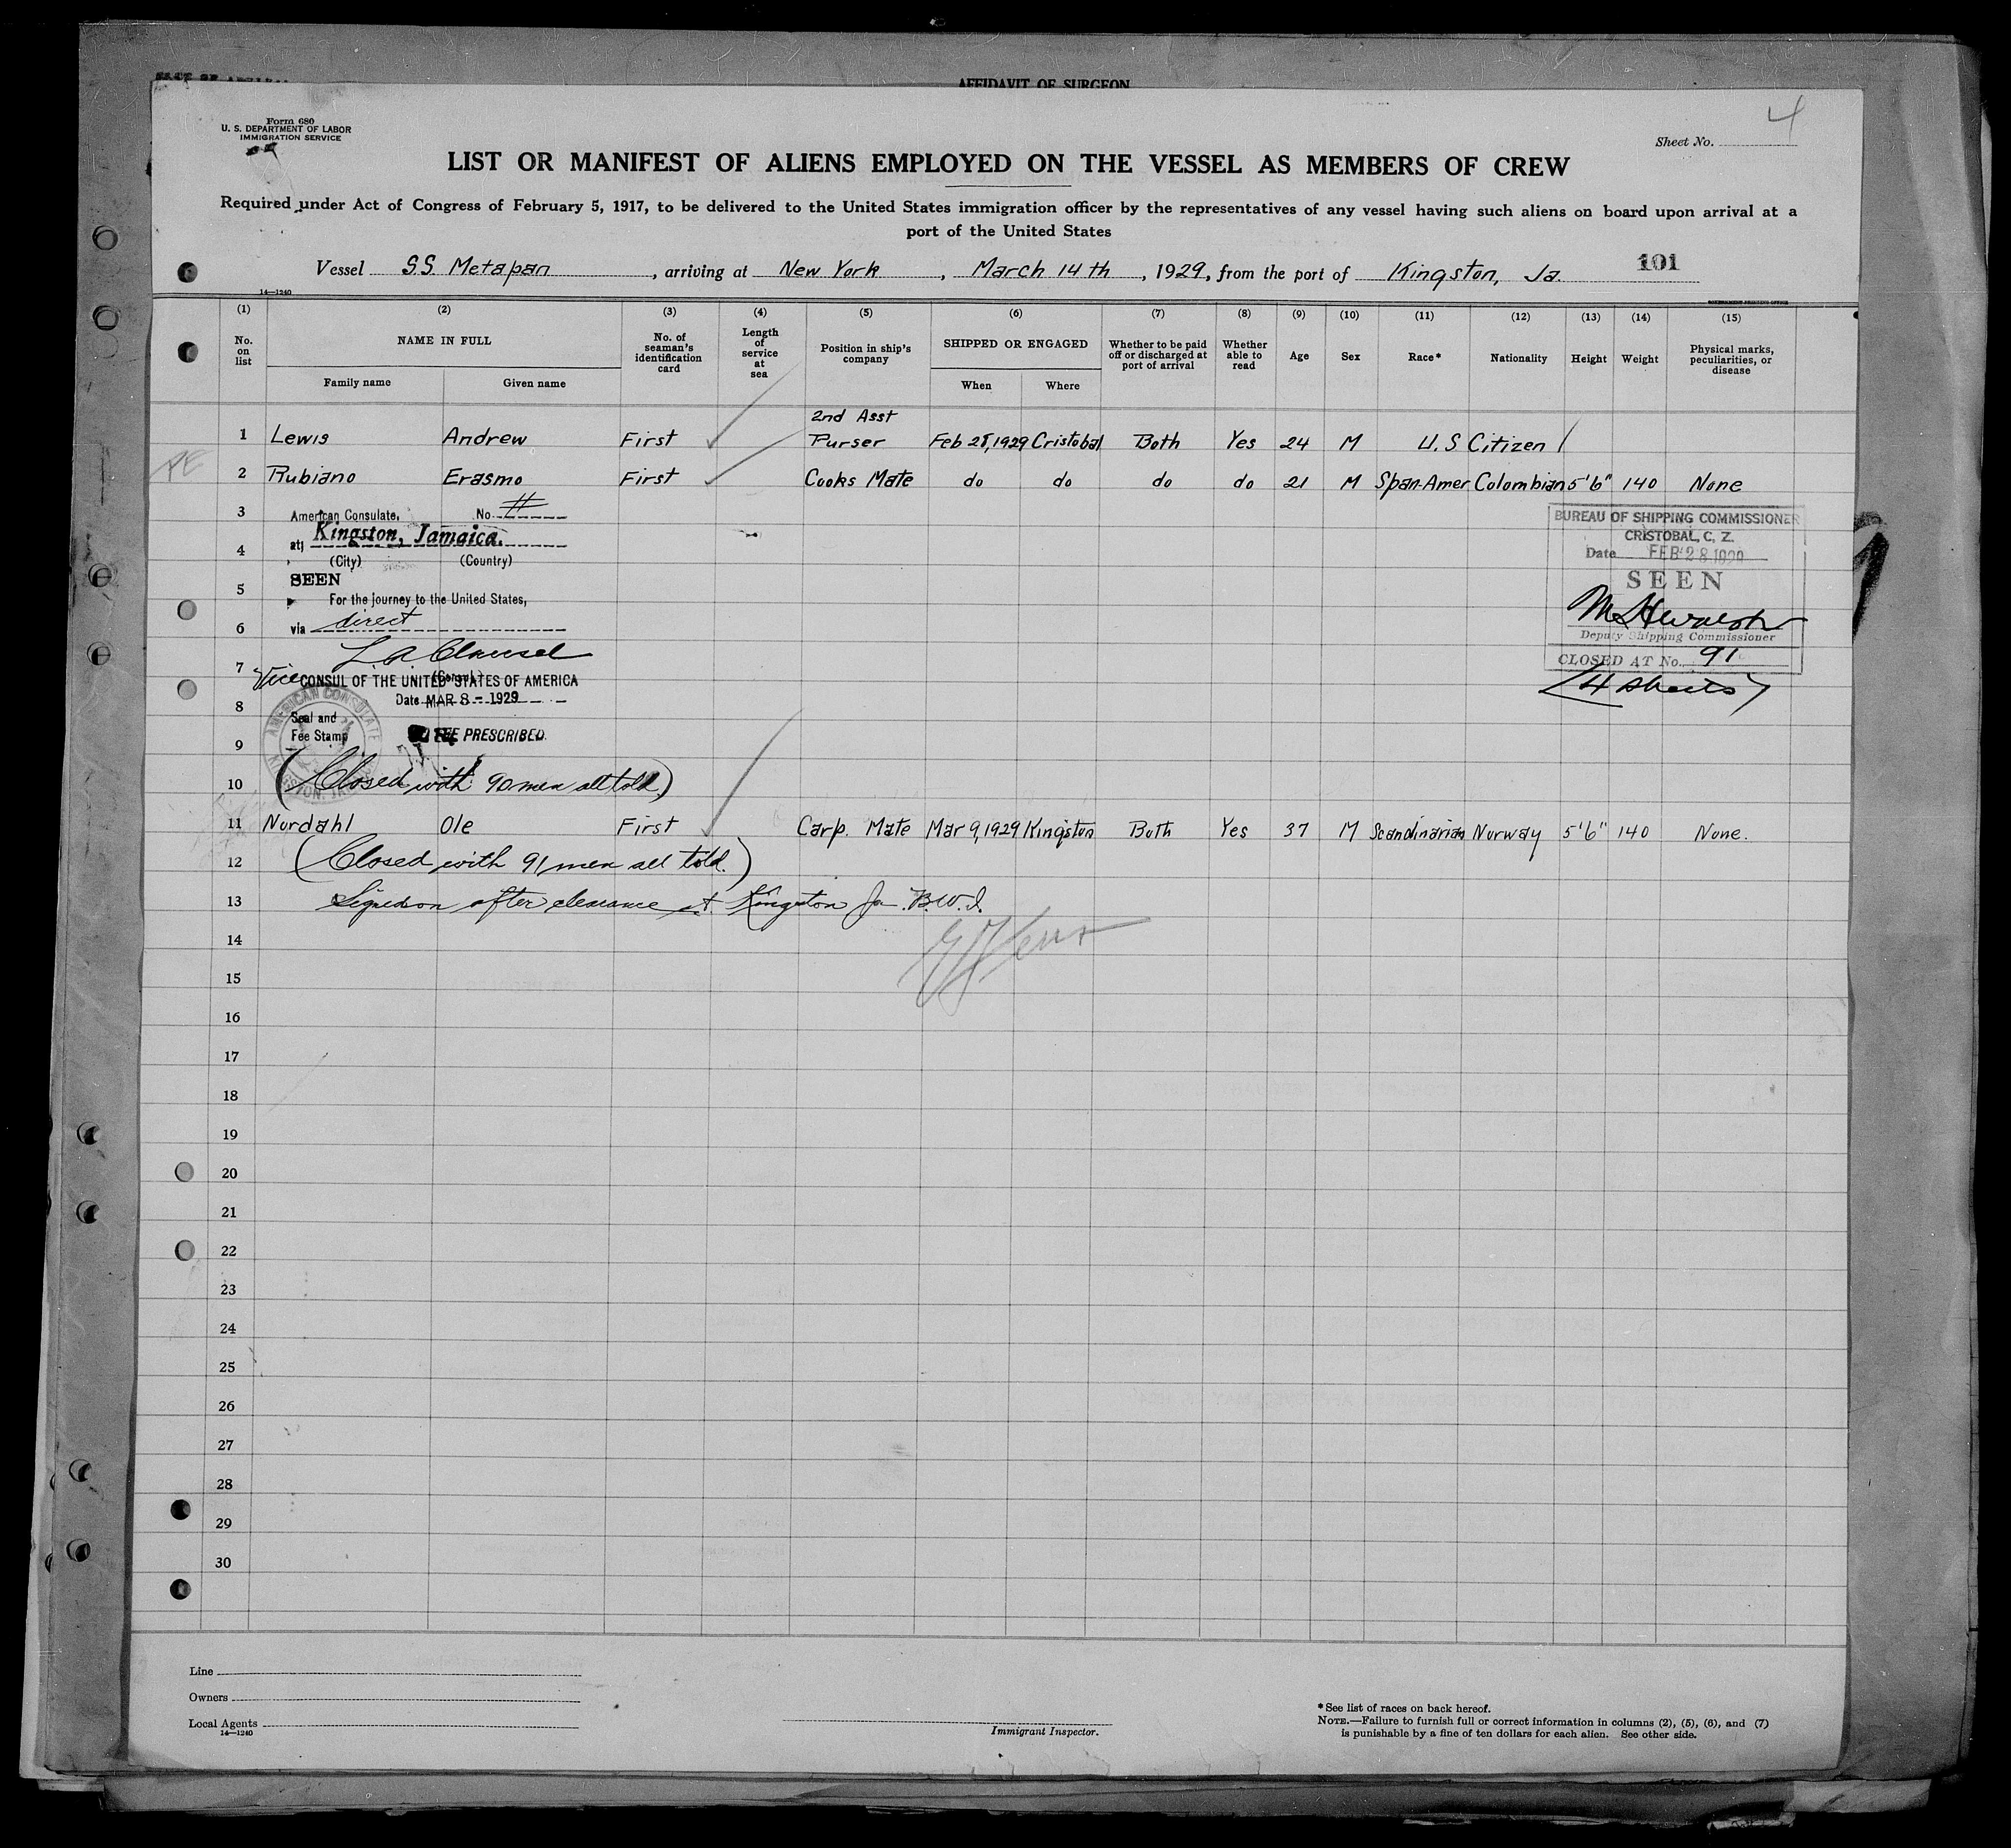 AFFIDAVIT OF SURGEON
Form 680
U. S. DEPARTMENT OF LABOR
IMMIGRATION SERVICE
4
Sheet No.
LIST OR MANIFEST OF ALIENS EMPLOYED ON THE VESSEL AS MEMBERS OF CREW
Required under Act of Congress of February 5, 1917, to be delivered to the United States immigration officer by the representatives of any vessel having such aliens on board upon arrival at a
port of the United States
Vessel S.S. Metapan, arriving at New York, March 14th, 1929, from the port of Kingston, Ja. 101
14—1240
(1) (2) (3) (4) (5) (6) (7) (8) (9) (10) (11) (12) (13) (14) (15)
No. on list
NAME IN FULL
Family name
Given name
No. of seaman's identification card
Length of service at sea
Position in ship's company
SHIPPED OR ENGAGED
When
Where
Whether to be paid off or discharged at port of arrival
Whether able to read
Age
Sex
Race*
Nationality
Height
Weight
Physical marks, peculiarities, or disease
2nd Asst
1 Lewis Andrew First Purser Feb 28, 1929 Cristobal Both Yes 24 M U.S Citizen
2 Rubiano Erasmo First Cooks Mate do do do do 21 M Span-Amer Colombian 5'6" 140 None
3
American Consulate, No.
4
at Kingston, Jamaica.
(City) (Country)
SEEN
5
For the journey to the United States,
6
via direct
7
Vice CONSUL OF THE UNITED STATES OF AMERICA
(Consul.)
Date MAR 8 - 1929
8
AMERICAN CONSULATE
KINGSTON, JAMAICA
Seal and
Fee Stamp
FEE PRESCRIBED.
9
10 (Closed with 90 men all told)
BUREAU OF SHIPPING COMMISSIONER
CRISTOBAL, C. Z.
Date FEB 28 1929
SEEN
Deputy Shipping Commissioner
CLOSED AT No. 91
(4 sheets)
11 Nordahl Ole First Carp. Mate Mar 9, 1929 Kingston Both Yes 37 M Scandinavian Norway 5'6" 140 None.
12 (Closed with 91 men all told.)
13 Signed on after clearance at Kingston Ja. B.W.I.
14
15
16
17
18
19
20
21
22
23
24
25
26
27
28
29
30
Line
Owners
Local Agents
14—1240
Immigrant Inspector.
*See list of races on back hereof.
NOTE.—Failure to furnish full or correct information in columns (2), (5), (6), and (7)
is punishable by a fine of ten dollars for each alien. See other side.